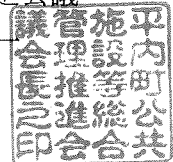 平内町公共
施設等総合
管理推進会
議会長之印